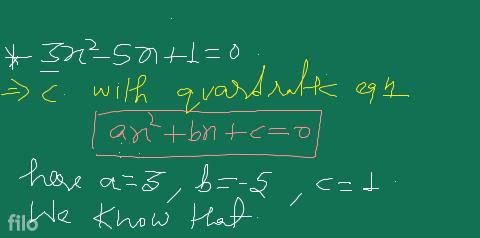 * 3x²-5x+1=0.
=> c. with quardratic eqn
ax²+bx+c=0
here a=3, b=-5, c=1.
We know that.
filo